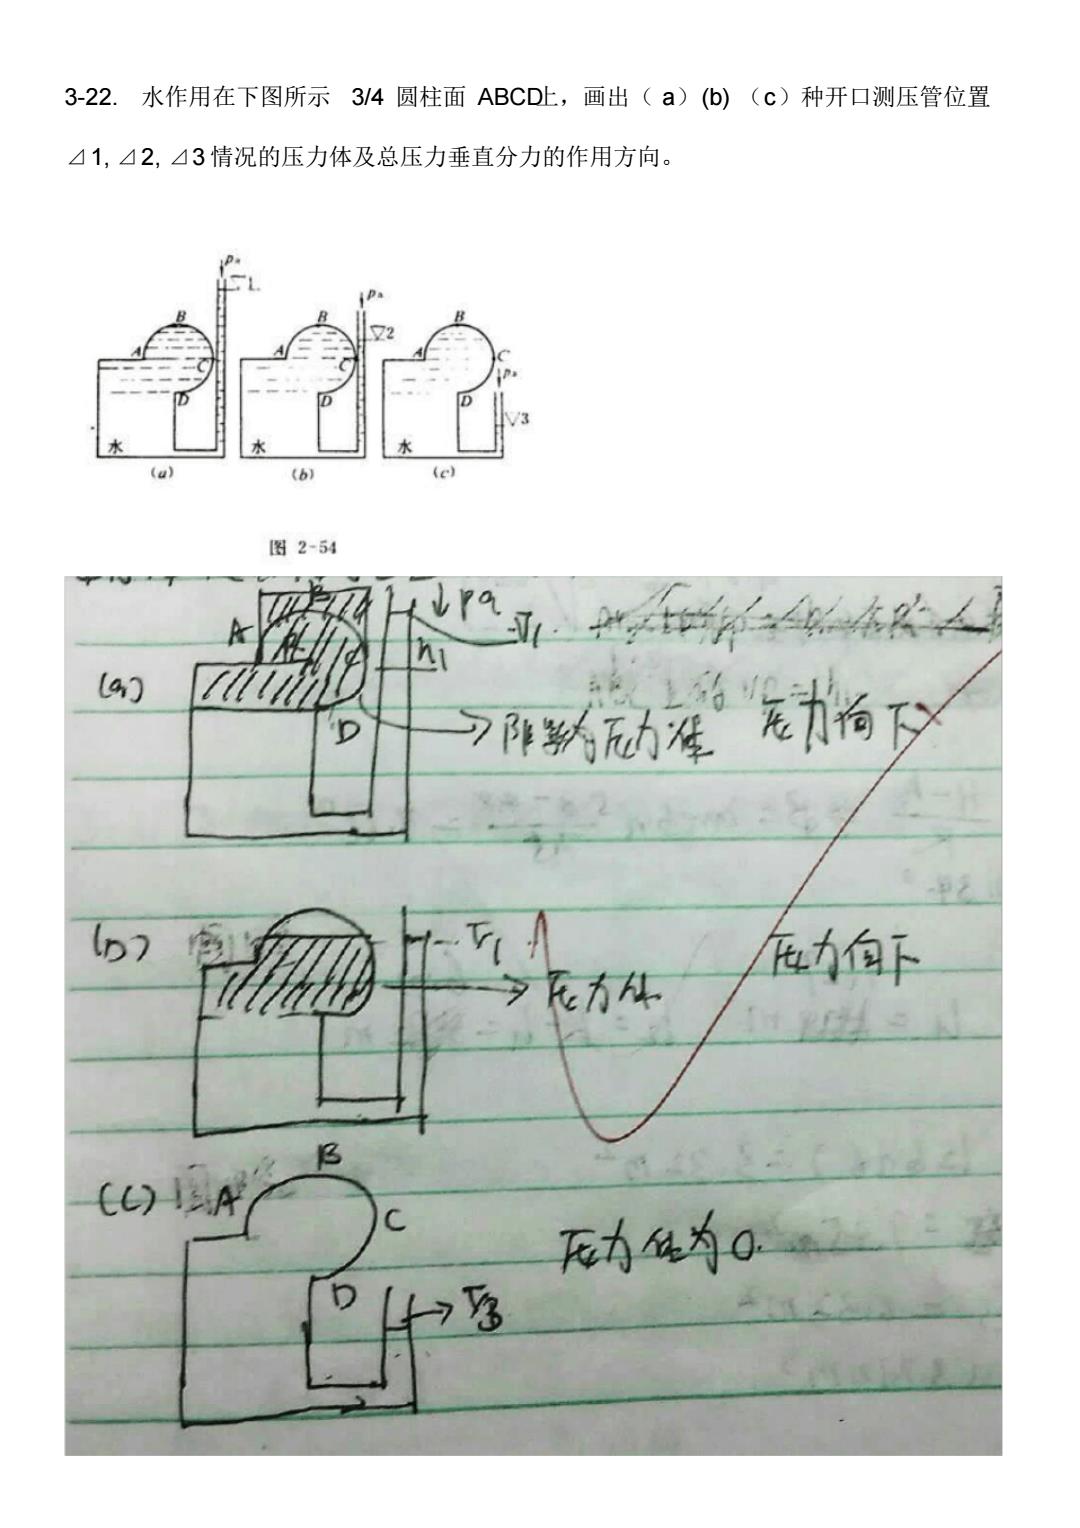 3-22. 水作用在下图所示 3/4 圆柱面 ABCD上，画出（ a）(b) （c）种开口测压管位置
⊿1, ⊿2, ⊿3 情况的压力体及总压力垂直分力的作用方向。
pa
▽1
B
A
C
D
水
(a)
pa
▽2
B
A
C
D
水
(b)
B
A
C
pa
D
▽3
水
(c)
图 2-54
B
pa
A
▽1
h1
(a)
C
D
阴影为压力体 压力向下
(b)
▽1
压力体
压力向下
(c)
B
A
C
压力体为0.
D
▽3